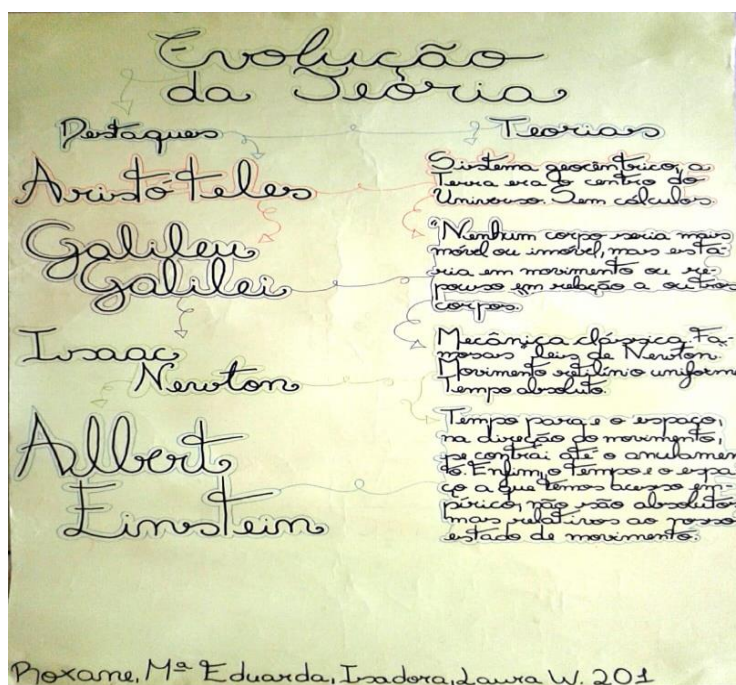 Evolução
da Teòria
Destaques Teorias
Aristóteles
Sistema geocêntrico, a
Terra era o centro do
Universo. Sem cálculos.
Galileu
Galilei
"Nenhum corpo seria mais
móvel ou imóvel, mas esta-
ria em movimento ou re-
pouso em relação a outros
corpos.
Isaac
Newton
Mecânica clássica. Fa-
mosas leis de Newton.
Movimento retilínio uniforme
Tempo absoluto.
Albert
Einstein
Tempo para e o espaço,
na direção do movimento,
se contrai até o anulamen-
to. Enfim, o tempo e o espa-
ço a que temos acesso em-
pírico, não são absolutos
mas relativos ao nosso
estado de movimento.
Roxane, Mª Eduarda, Isadora, Laura W. 201